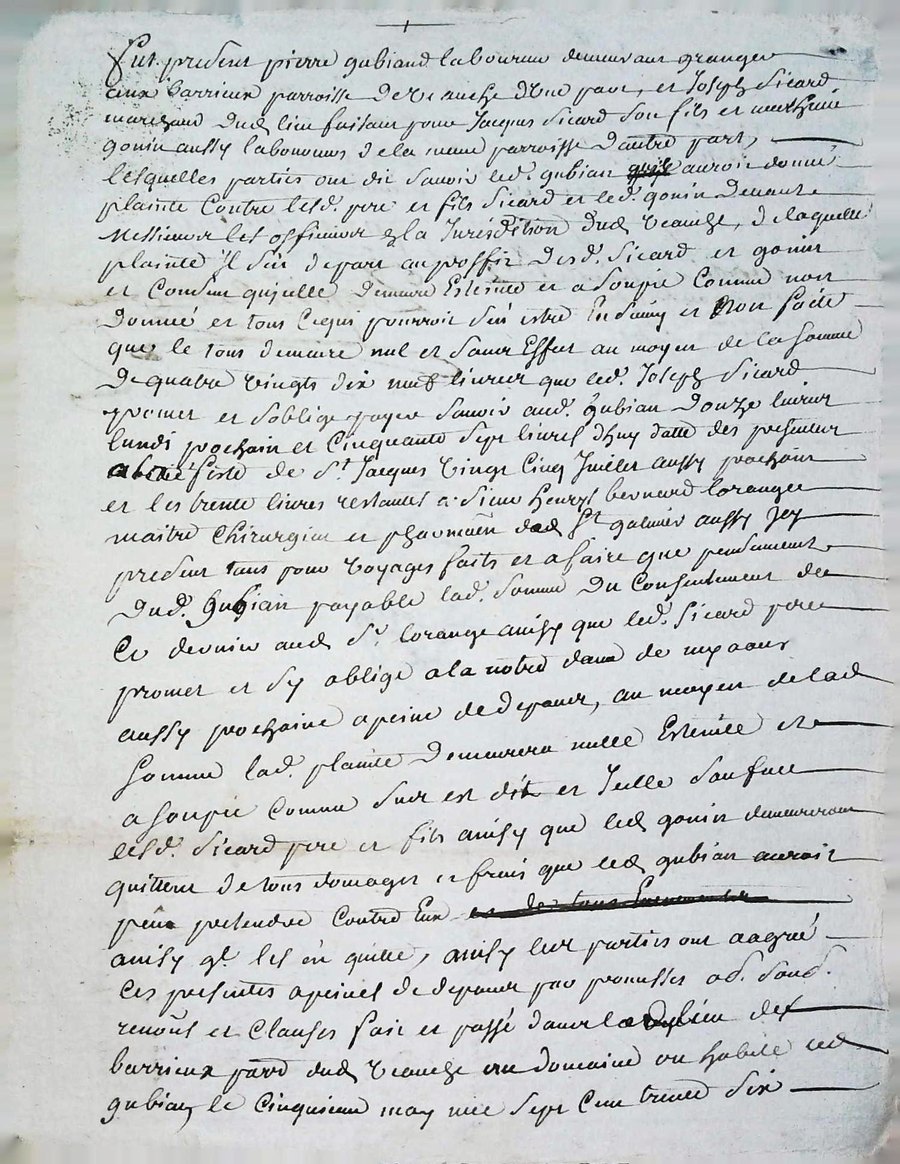 fut present pierre gubiand laboureur demeurant granger
aux barrieux parroisse de veauche d'une part, et Joseph Sicard
marchand dud lieu faisant pour Jacques Sicard son fils et
gonin aussy laboureur de la meme parroisse d'autre part,
lesquelles parties ont dit savoir led. gubian auroit donné
plainte contre lesd. pere et fils Sicard et led. gonin devant
Messieurs les officiers de la Jurisdition dud veauche, de laquelle
plainte Il s'en depart au proffit desd. Sicard et gonin
et consent qu'elle demeure Esteinte et asoupie comme non
donnée et tous ce qui pourroit s'en estre Ensuivy et Non faite
que le tous demeure nul et sans Effet au moyen de la somme
de quatre vingts dix neuf livres que led. Joseph Sicard
promet et s'oblige payer savoir aud. gubian douze livres
lundi prochain et cinquante sept livres d'huy datte des presentes
feste de St. Jacques vingt cinq Juillet aussy prochain
et les trente livres restantes a Sieur henry bernard lorange
maitre chirurgien et pharmacien dud St galmier aussy Icy
present tant pour voyages faits et a faire que pensements
dud. gubian payable lad. somme du consentement de
ce dernier aud Sr. lorange ainsy que led. Sicard pere
promet et s'y oblige a la notre dame de my aout
aussy prochaine a peine de depans, au moyen de lad
somme lad. plainte demeurera nulle Esteinte et
asoupie comme sus est dit et Icelle s'en face
lesd. Sicard pere et fils ainsy que led gonin demeureront
quittent de tous domages et frais que led gubian auroit
peut pretendre contre Eux et de tous Evenements
ainsy qu. les en quitte, ainsy les parties ont aagréé
ces presentes a peines de depans par promesses ob. soud.
renons et clauses fait et passé dans le lieu des
barrieux parr dud veauche au domaine ou habite led
gubian, le cinquieme may mil sept cent trente six